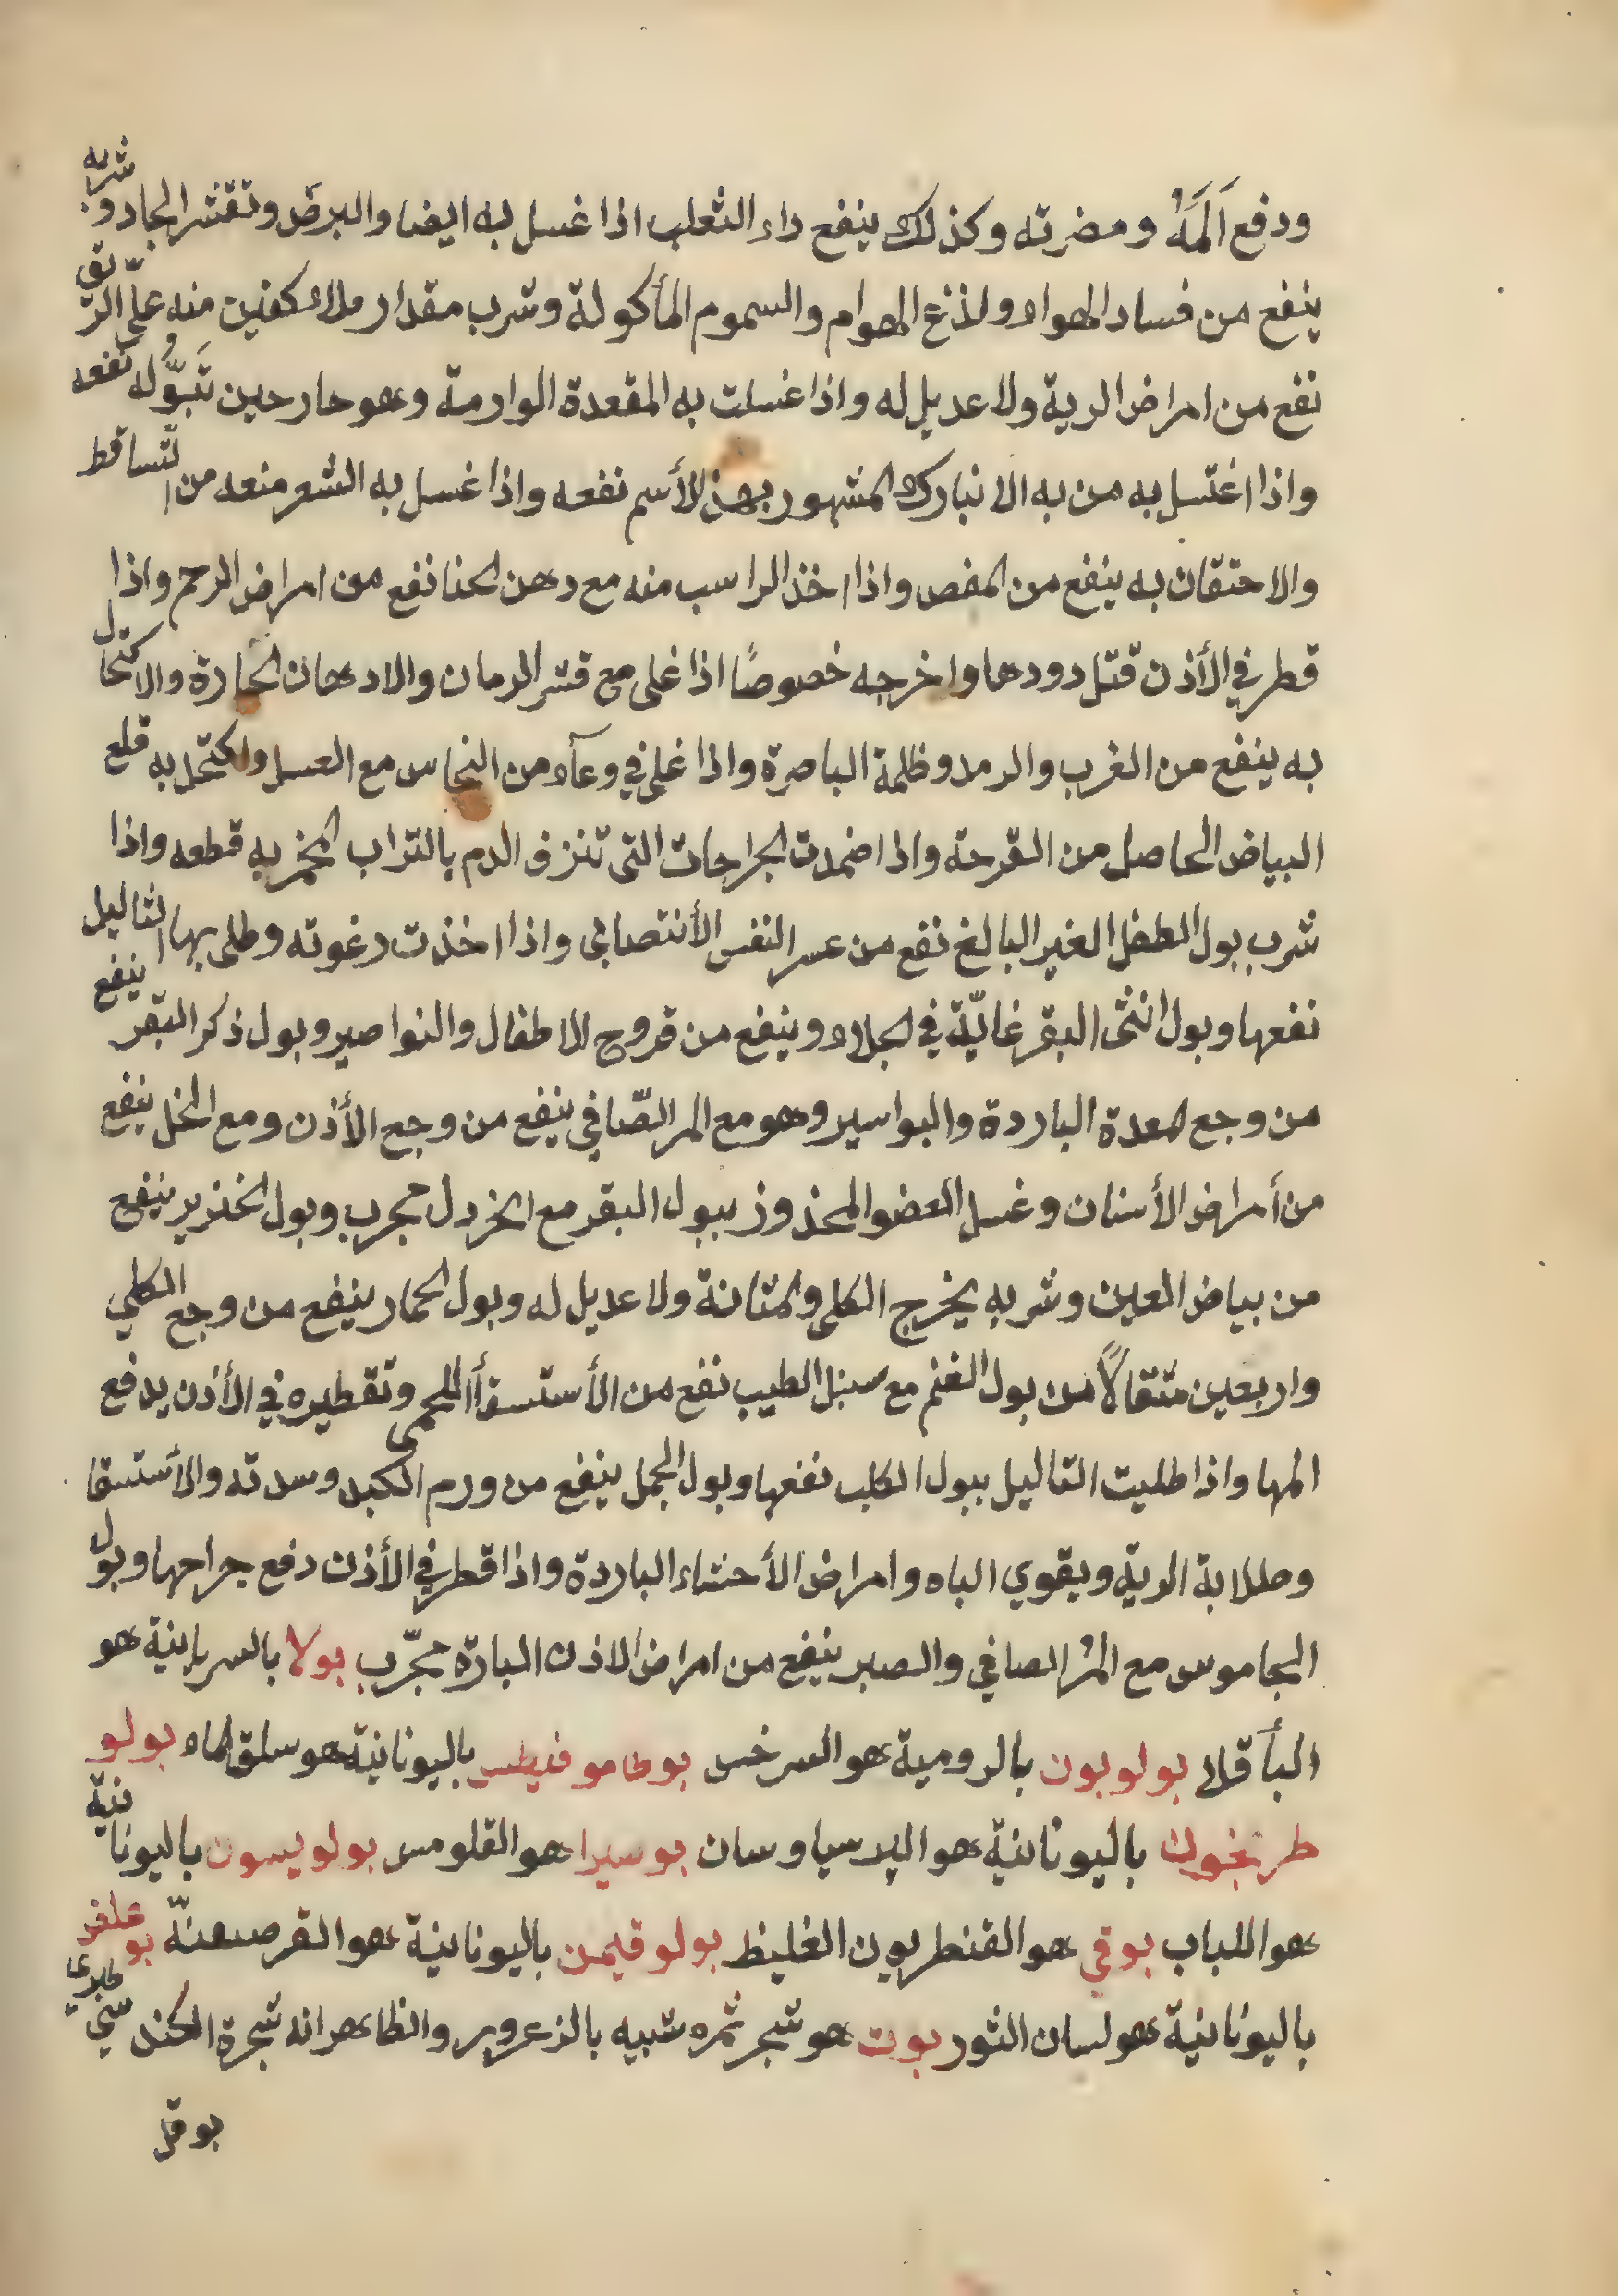 ودفع اَلَمَهُ ومضرته وكذلك ينفع داء الثعلب اذا غسل به ايضا والبرص وتقشر الجلد وشربه
ينفع من فساد الهواء ولذع الهوام والسموم المأكولة وشرب مقدار ملاء كفين منه على الريق
نفع من امراض الرية ولا عديل له واذا غسلت به المقعدة الوارمة وهو حار حين تَبَوُّله نفعه
واذا اغتسل به من به الانبارك المشهور بهذ الأسم نفعه واذا غسل به الشعر منعه من التساقط
والاحتقان به ينفع من المغص واذا اخذ الراسب منه مع دهن الحنا نفع من امراض الرحم واذا
قطر في الأذن قتل دودها واخرجه خصوصًا اذا غلى مع قشر الرمان والادهان الحارة والاكتحال
به ينفع من الغرب والرمد وظلمة الباصرة واذا غلي في وعآء من النحاس مع العسل واكتحل به قلع
البياض الحاصل من القرحة واذا ضمدت الجراحات التى تنزف الدم بالتراب الخمر به قطعه واذا
شرب بول الطفل الغير البالغ نفع من عسر النفس الأنتصابي واذا اخذت رغوته وطلى بها الثاليل
نفعها وبول انثى البقر غايّة في الجلاء وينفع من قروح الاطفال والنواصير وبول ذكر البقر ينفع
من وجع المعدة الباردة والبواسير وهو مع المر الصّافي ينفع من وجع الأذن ومع الخل ينفع
من أمراض الأسنان وغسل العضو المخذوز ببول البقر مع الخردل مجرب وبول الخنزير ينفع
من بياض العين وشربه يخرج الكلى والمثانة ولا عديل له وبول الحمار ينفع من وجع الكلي
واربعين مثقالًا من بول الغنم مع سنبل الطيب نفع من الأستسقأ اللحمى وتقطيره في الأذن يدفع
المها واذا طليت التاليل ببول الكلب نفعها وبول الجمل ينفع من ورم الكبد وسدته والأستسقا
وصلابة الرية ويقوي الباه وامراض الأحشاء الباردة واذا قطر في الأذن دفع جراحها وبول
الجاموس مع المرُ الصافي والصبر ينفع من امراض الاذن البارة مجرّب بولا بالسريانية هو
البأقلا بولوبون بالرومية هو السرخس بوطاموفنيطس باليونانية هو سلق الماء بولو
طريخون باليونانية هو البرسياوسان بوسيرا هو القلومس بولويسون باليونانية
هو اللباب بوقي هو القنطريون الغليظ بولوقيمن باليونانية هو القرصعنّة بوعلفر
باليونانية هو لسان الثور بوت هو شجر ثمره شبيه بالزعرور والظاهر انه شجرة الكندس طبري
بوقل